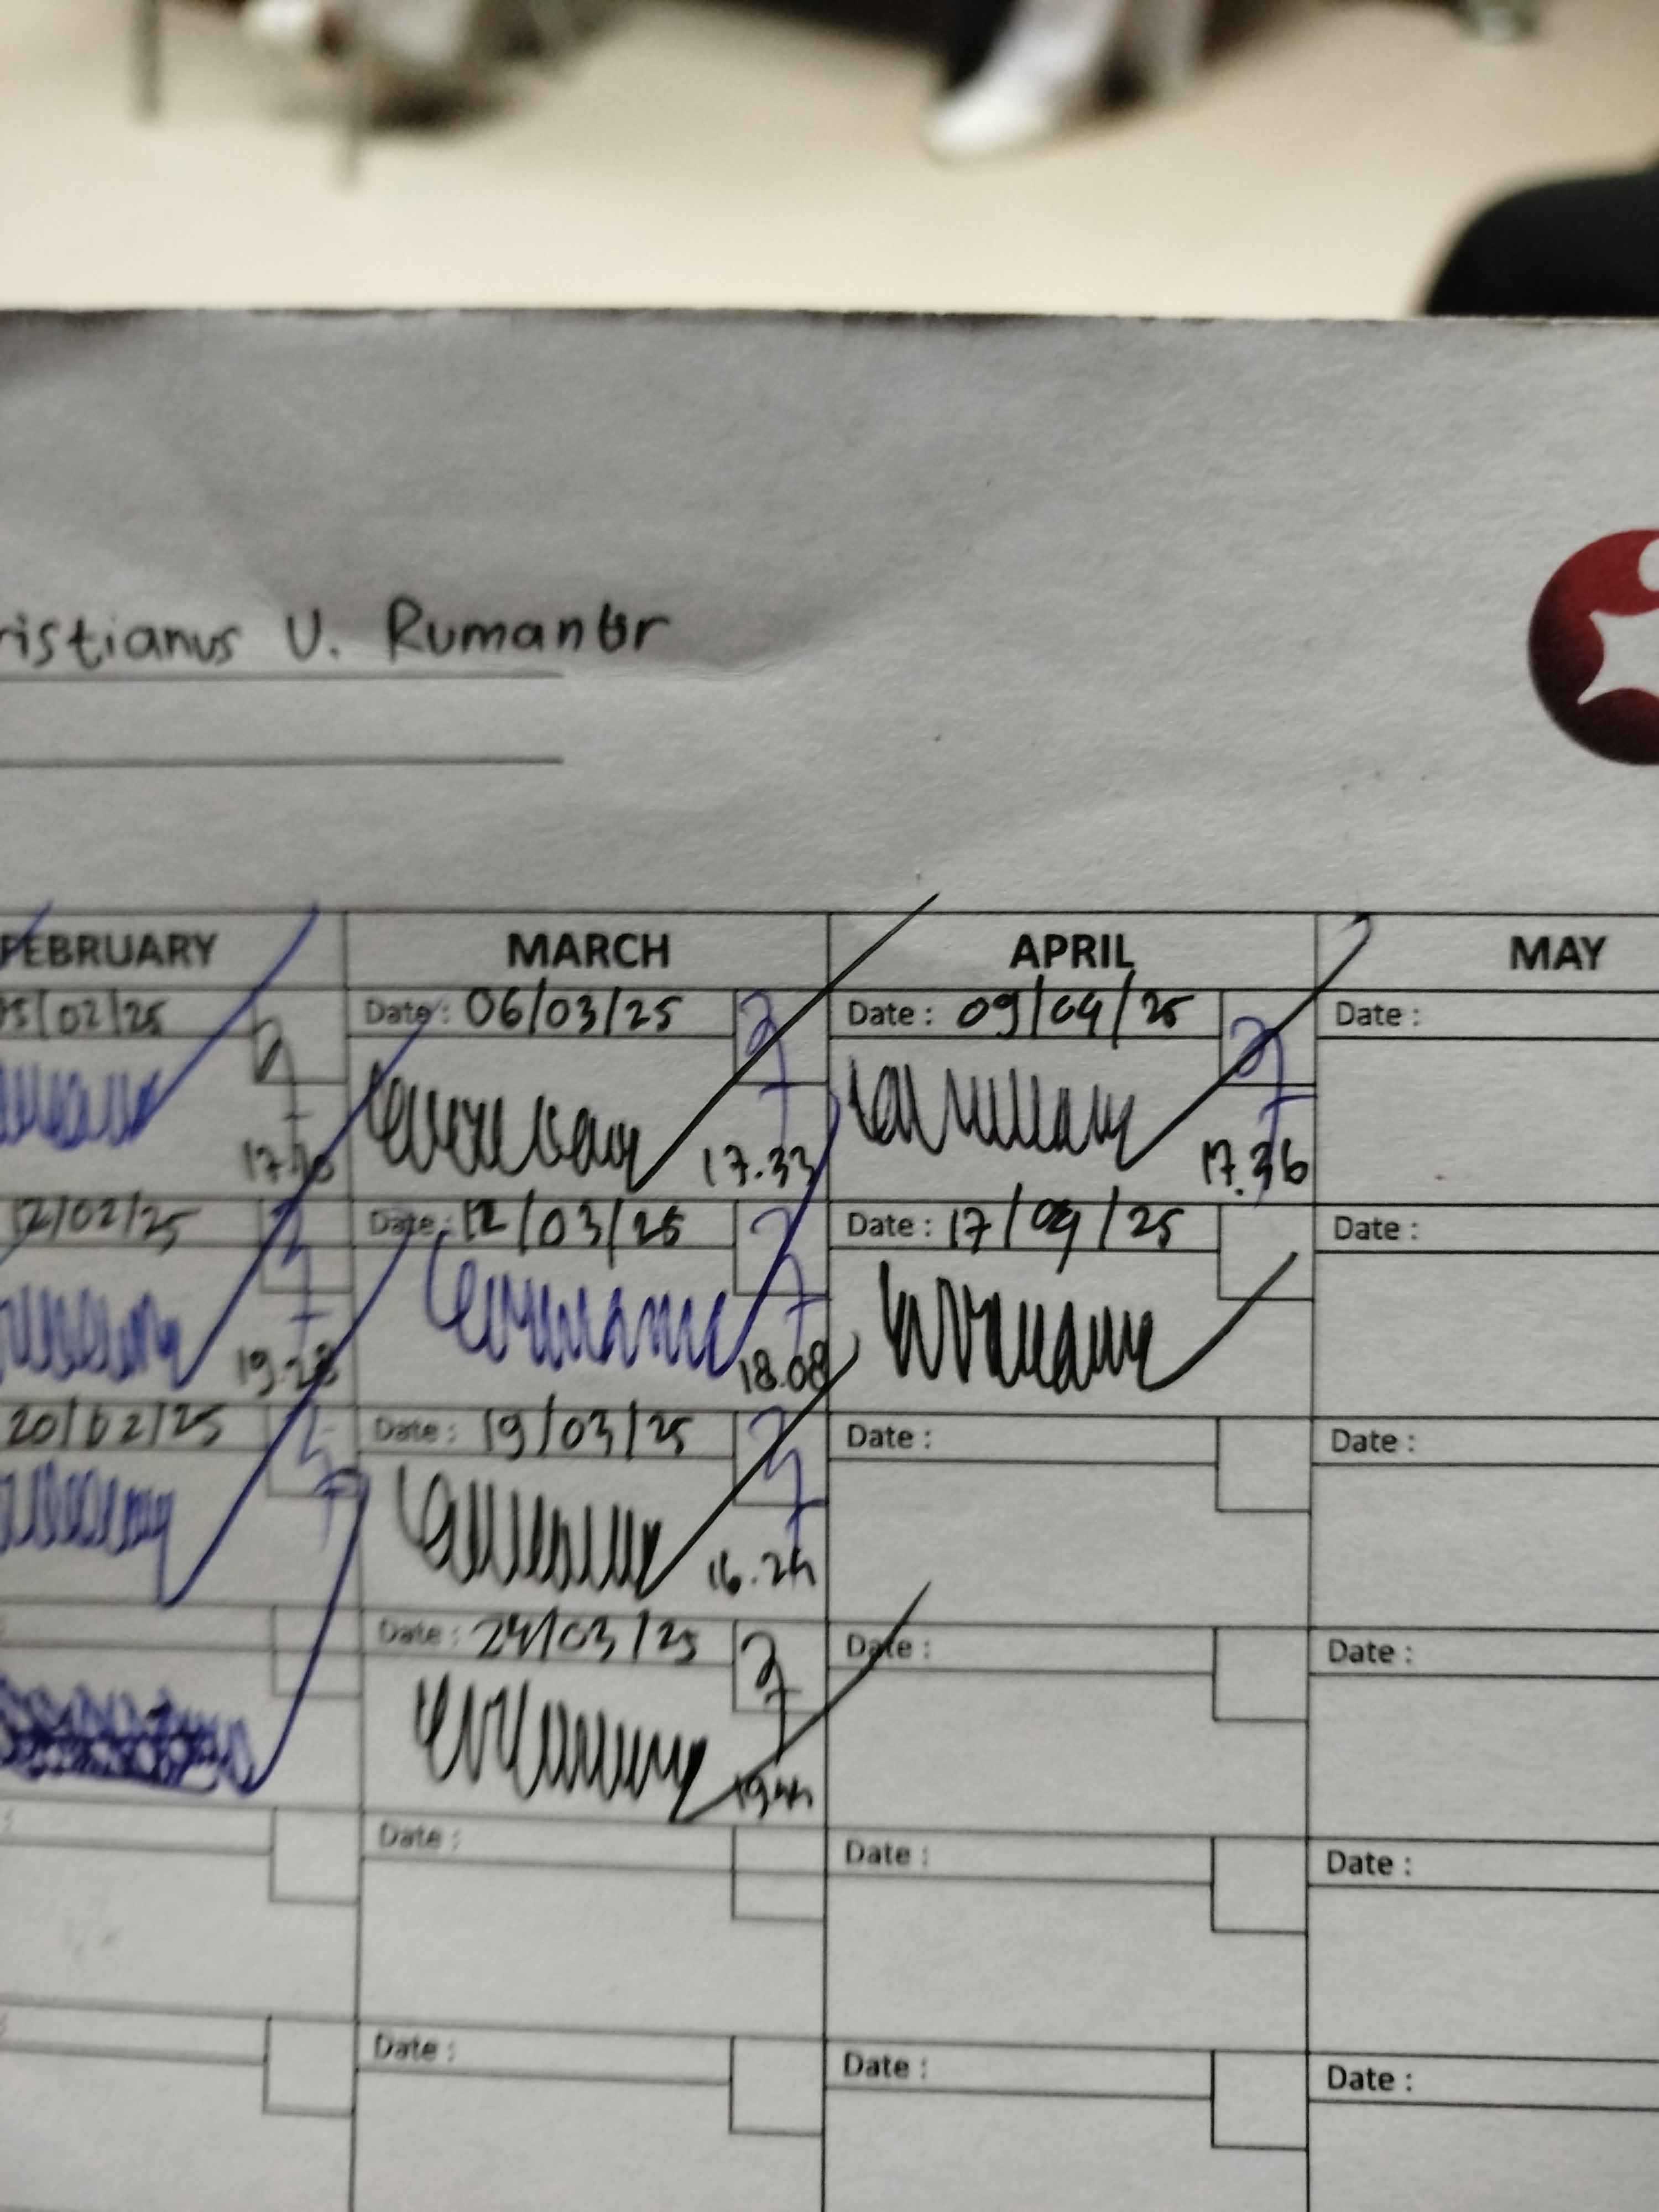 ristianus U. Rumantir
FEBRUARY MARCH APRIL MAY
05/02/25 Date : 06/03/25 Date : 09/04/25 Date :
17.33 17.36
12/02/25 Date : 12/03/25 Date : 17/04/25 Date :
19.28 18.08
20/02/25 Date : 19/03/25 Date : Date :
16.24
Date : 24/03/25 Date : Date :
Date : Date : Date :
Date : Date : Date :